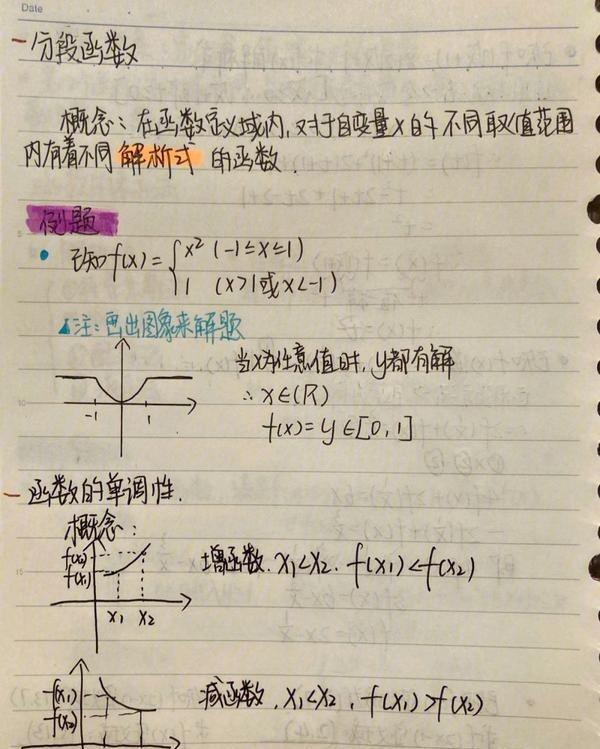 Date
一分段函数
概念:在函数定义域内,对于自变量X的不同取值范围
内有着不同解析式的函数.
例题
• 已知f(x)={x² (-1≤x≤1)
1 (x>1或x<-1)
▲注:画出图象来解题
当X为任意值时,y都有解
∴x∈(R)
f(x)=y∈[0,1]
-1 1
一函数的单调性.
概念:
f(x₂)
f(x₁)
增函数.x₁<x₂.f(x₁)<f(x₂)
x₁ x₂
f(x₁)
f(x₂)
减函数.x₁<x₂,f(x₁)>f(x₂)